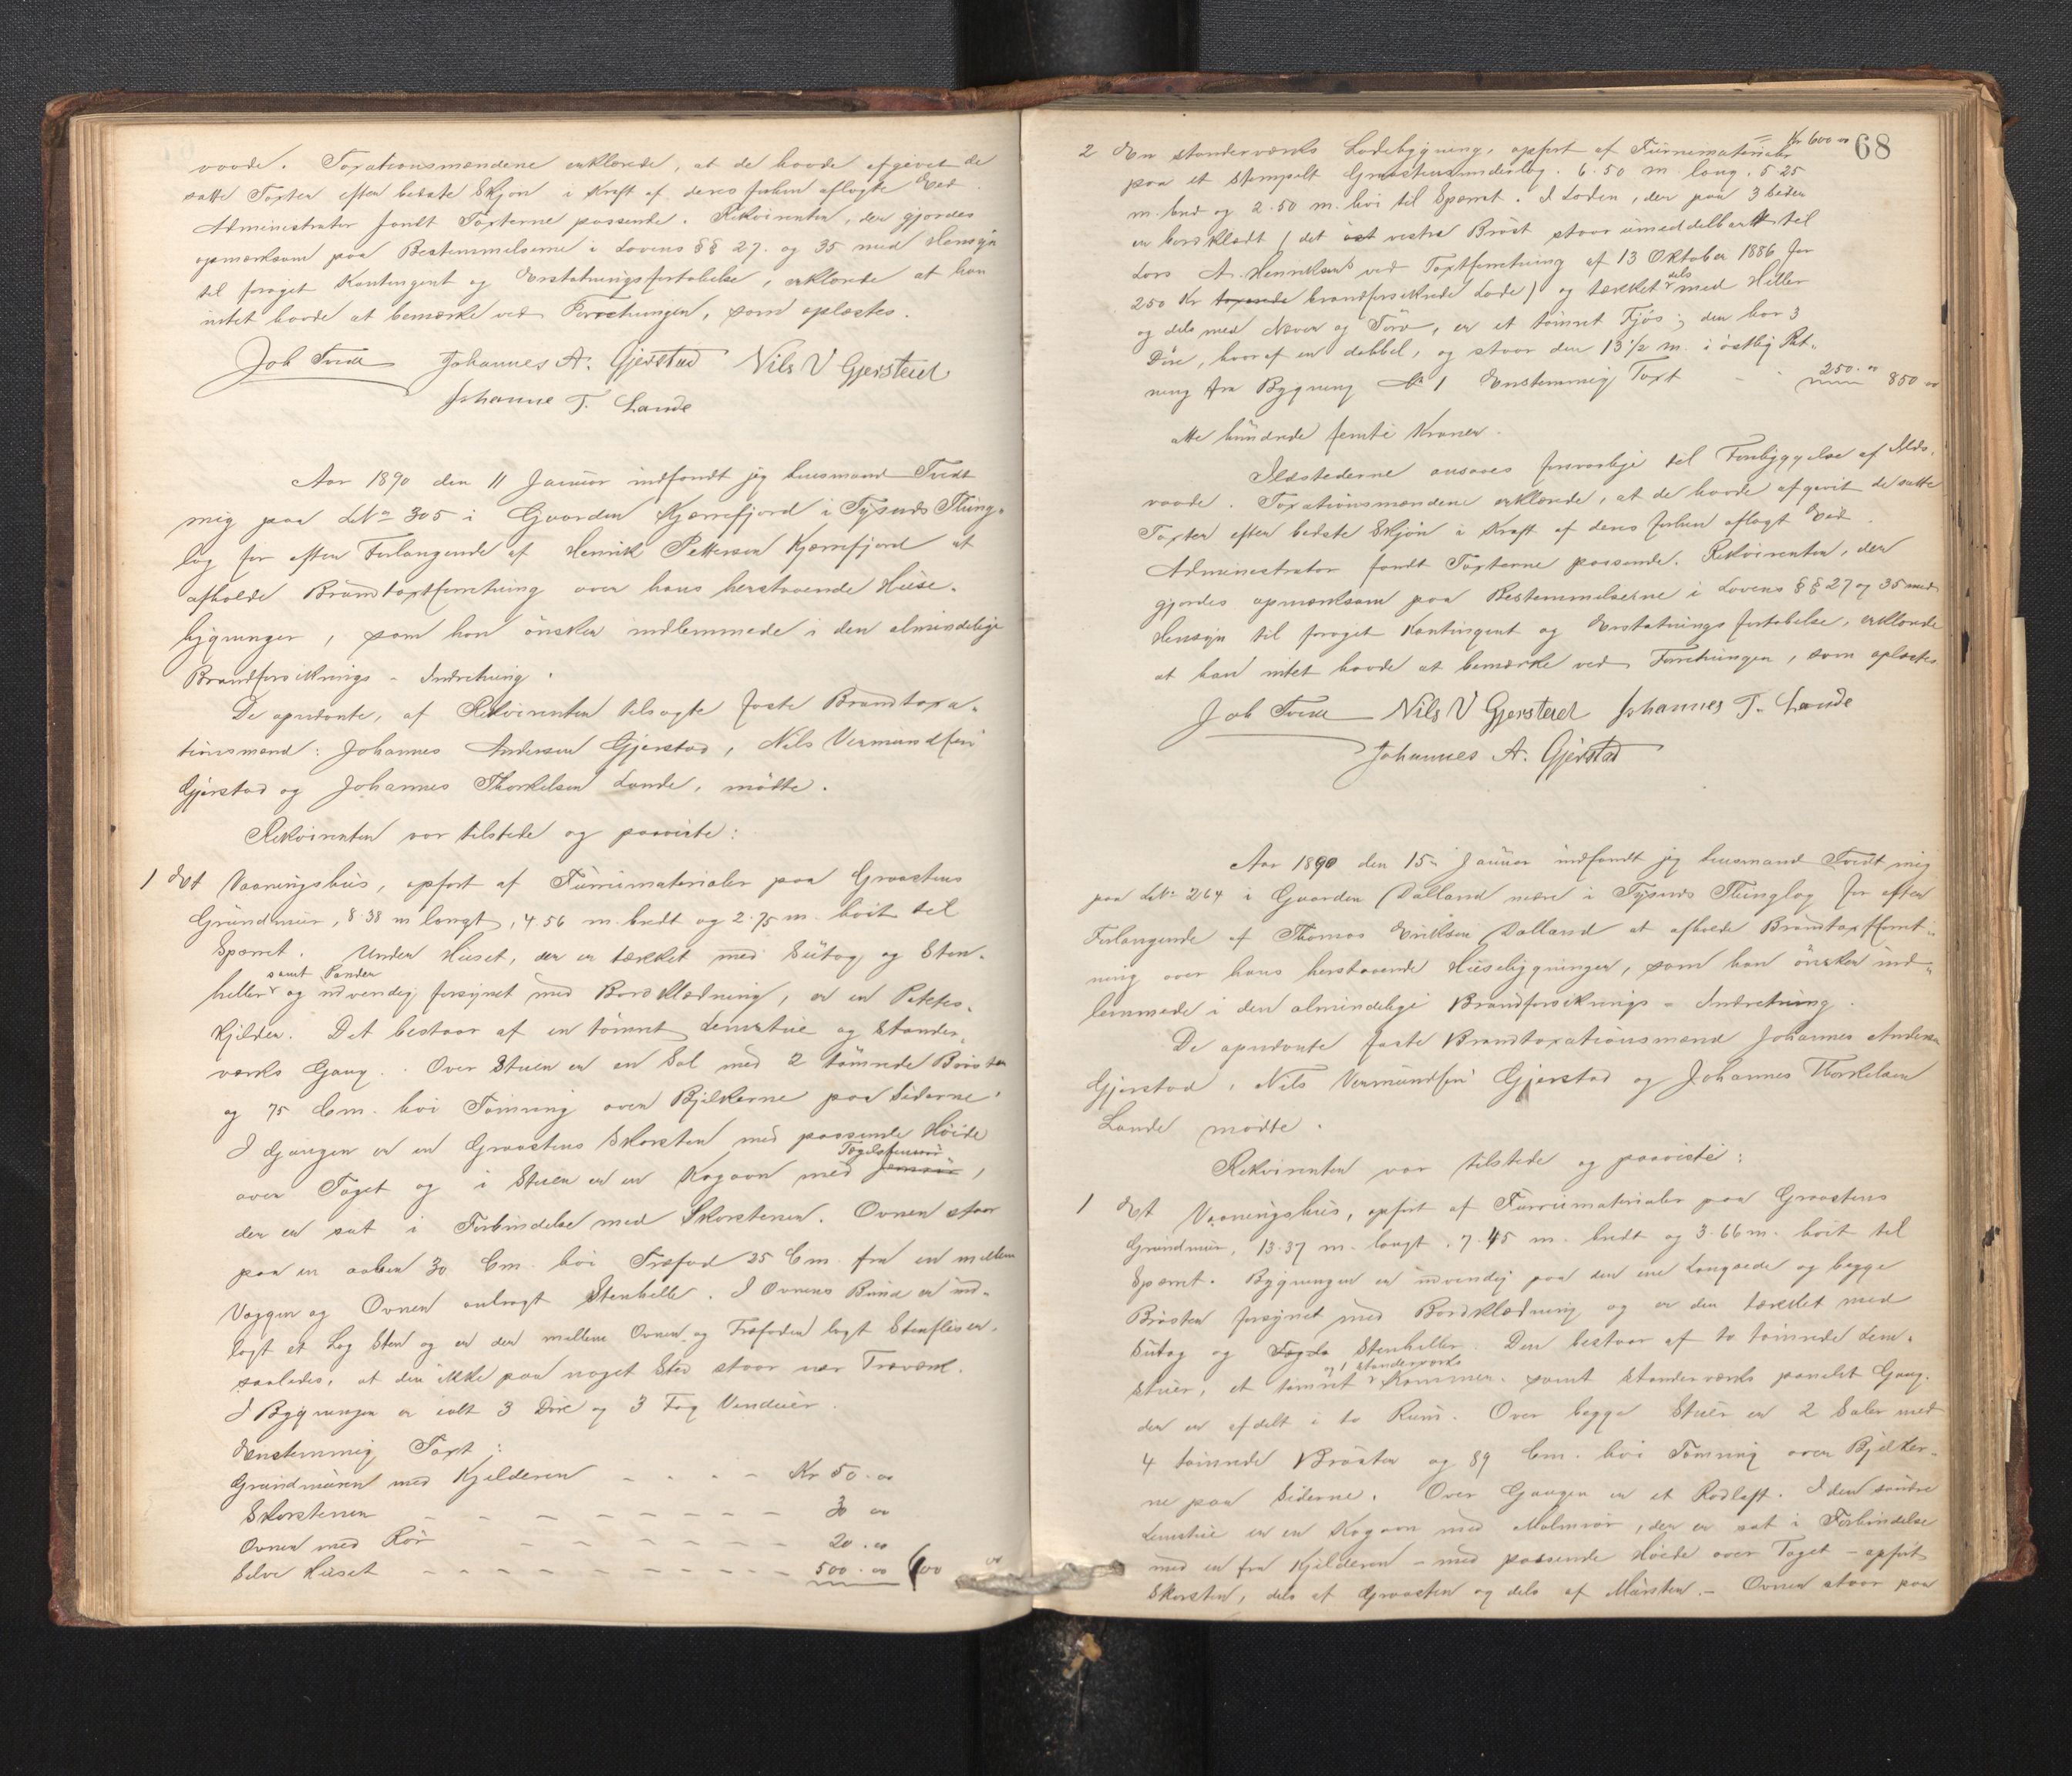 vaade. Taxationsmændene erklærede, at de havde afgivet de
satte Taxter efter bedste Skjøn i Kraft af deres forhen aflagte Eed.
Administrator fandt Taxterne passende. Rekvirenten, der gjordes
opmærksom paa Bestemmelserne i Lovens §§ 27. og 35 med Hensyn
til foraget Kontingent og Erstatningsfortabelse, erklærede at han
intet havde at bemærke ved Forretningen, som oplæstes.
Job Tvedt Johannes A. Gjerstad Nils V Gjersted
Johannes T. Lande
Aar 1890 den 11 Januar indfandt jeg Lensmand Tvedt
mig paa LNo 305 i Gaarden Kjærrefjord i Tysnæs Thing-
lag for efter Forlangende af Henrik Pettersen Kjærrefjord at
afholde Brandtaxtforretning over hans herstaaende Huse-
bygninger, som han ønsker indlemmede i den almindelige
Brandforsikrings - Indretning.
De opnævnte, af Rekvirenten tilsagte faste Brandtaxa-
tionsmænd: Johannes Andersen Gjerstad, Nils Vermundsen
Gjerstad og Johannes Thorkelsen Lande, mødte.
Rekvirenten var tilstede og paaviste:
1 Et Vaaningshus, opført af Furrumaterialer paa Graastens
Grundmur, 8.38 m langt, 4.56 m. bredt og 2.75 m. høit til
Sparret. Under Huset, der er tækket med Sutag og Sten-
samt Pander
heller og udvendig forsynet med Bordklædning, er en Potetes-
kjelder. Det bestaar af en tømret Lemstue og Stander-
værks Gang. Over Stuen er en Sal med 2 tømrede Brøster
og 75 Cm. høi Tømring over Bjelkerne paa Siderne.
I Gangen er en Graastens Skorsten med passende Høide
Teglstensrør
over Taget og i Stuen er en Kogovn med ,
der er sat i Forbindelse med Skorstenen. Ovnen staar
paa en aaben 30 Cm. høi Træfod 25 Cm. fra en mellem
Væggen og Ovnen anbragt Stenhelle. I Ovnens Bund er ind-
lagt et Lag Sten og er der mellem Ovnen og Træfoden lagt Stenfliser,
saaledes, at den ikke paa noget Sted staar nær Træværk.
I Bygningen er ialt 3 Døre og 3 Fag Vinduer.
Enstemmig Taxt:
Grundmuren med Kjelderen - - - - Kr 50.00
Skorstenen - - - - - - - - - 30 00
Ovnen med Rør - - - - - - - 20.00
Selve Huset - - - - - - - - - 500.00 600 00
68
Kr 600 00
2 En standerværks Ladebygning, opført af Furrumaterialer
paa et stempelt Graastensunderlag. 6.50 m. lang. 5.25
m. bred og 2.50 m. høi til Sparret. I Laden, der paa 3 Sider
er bordklædt (det vestre Brøst staar umiddelbart til
Lars A. Henriksens ved Taxtforretning af 13 Oktober 1886 for
250 Kr taxerede brandforsikrede Lade) og tækket dels med Heller
og dels med Næver og Torv, er et tømret Fjøs; der har 3
Døre, hvoraf en dobbel, og staar den 13 1/2 m. i østlig Ret-
ning fra Bygning No 1 Enstemmig Taxt - - 250.00 850 00
otte hundrede femti Kroner.
Ildstederne ansaaes forsvarlige til Forebyggelse af Ilds-
vaade. Taxationsmændene erklærede, at de havde afgivet de satte
Taxter efter bedste Skjøn i Kraft af deres forhen aflagt Eed.
Administrator fandt Taxterne passende. Rekvirenten, der
gjordes opmærksom paa Bestemmelserne i Lovens §§ 27 og 35 med
Hensyn til foraget Kontingent og Erstatningsfortabelse, erklærede
at han intet havde at bemærke ved Forretningen, som oplæstes
Job Tvedt Nils V Gjersted Johannes T. Lande
Johannes A. Gjerstad
Aar 1890 den 15de Januar indfandt jeg Lensmand Tvedt mig
paa LNo 264 i Gaarden Dalland nedre i Tysnæs Thinglag for efter
Forlangende af Thomas Eriksen Dalland at afholde Brandtaxtforret-
ning over hans herstaaende Husebygninger, som han ønsker ind-
lemmede i den almindelige Brandforsikrings - Indretning.
De opnævnte faste Brandtaxationsmænd Johannes Andersen
Gjerstad, Nils Vermundsen Gjerstad og Johannes Thorkelsen
Lande mødte.
Rekvirenten var tilstede og paaviste:
1 Et Vaaningshus, opført af Furrumaterialer paa Graastens
Grundmur, 13.37 m. langt, 7.45 m. bredt og 3.66 m. høit til
Sparret. Bygningen er udvendig paa den ene Langside og begge
Brøster forsynet med Bordklædning og er den tækket med
Sutag og Stenheller. Den bestaar af to tømrede Lem-
og 1 standerværks
stuer, et tømret Kammer, samt standerværks panelet Gang,
der er afdelt i to Rum. Over begge Stuer er 2 Saler med
4 tømrede Brøster og 89 Cm. høi Tømring over Bjelker-
ne paa Siderne. Over Gangen er et Rodloft. I den søndre
Lemstue er en Kogovn med Malmrør, der er sat i Forbindelse
med en fra Kjelderen - med passende Høide over Taget - opført
Skorsten, dels af Graasten og dels af Mursten. - Ovnen staar paa